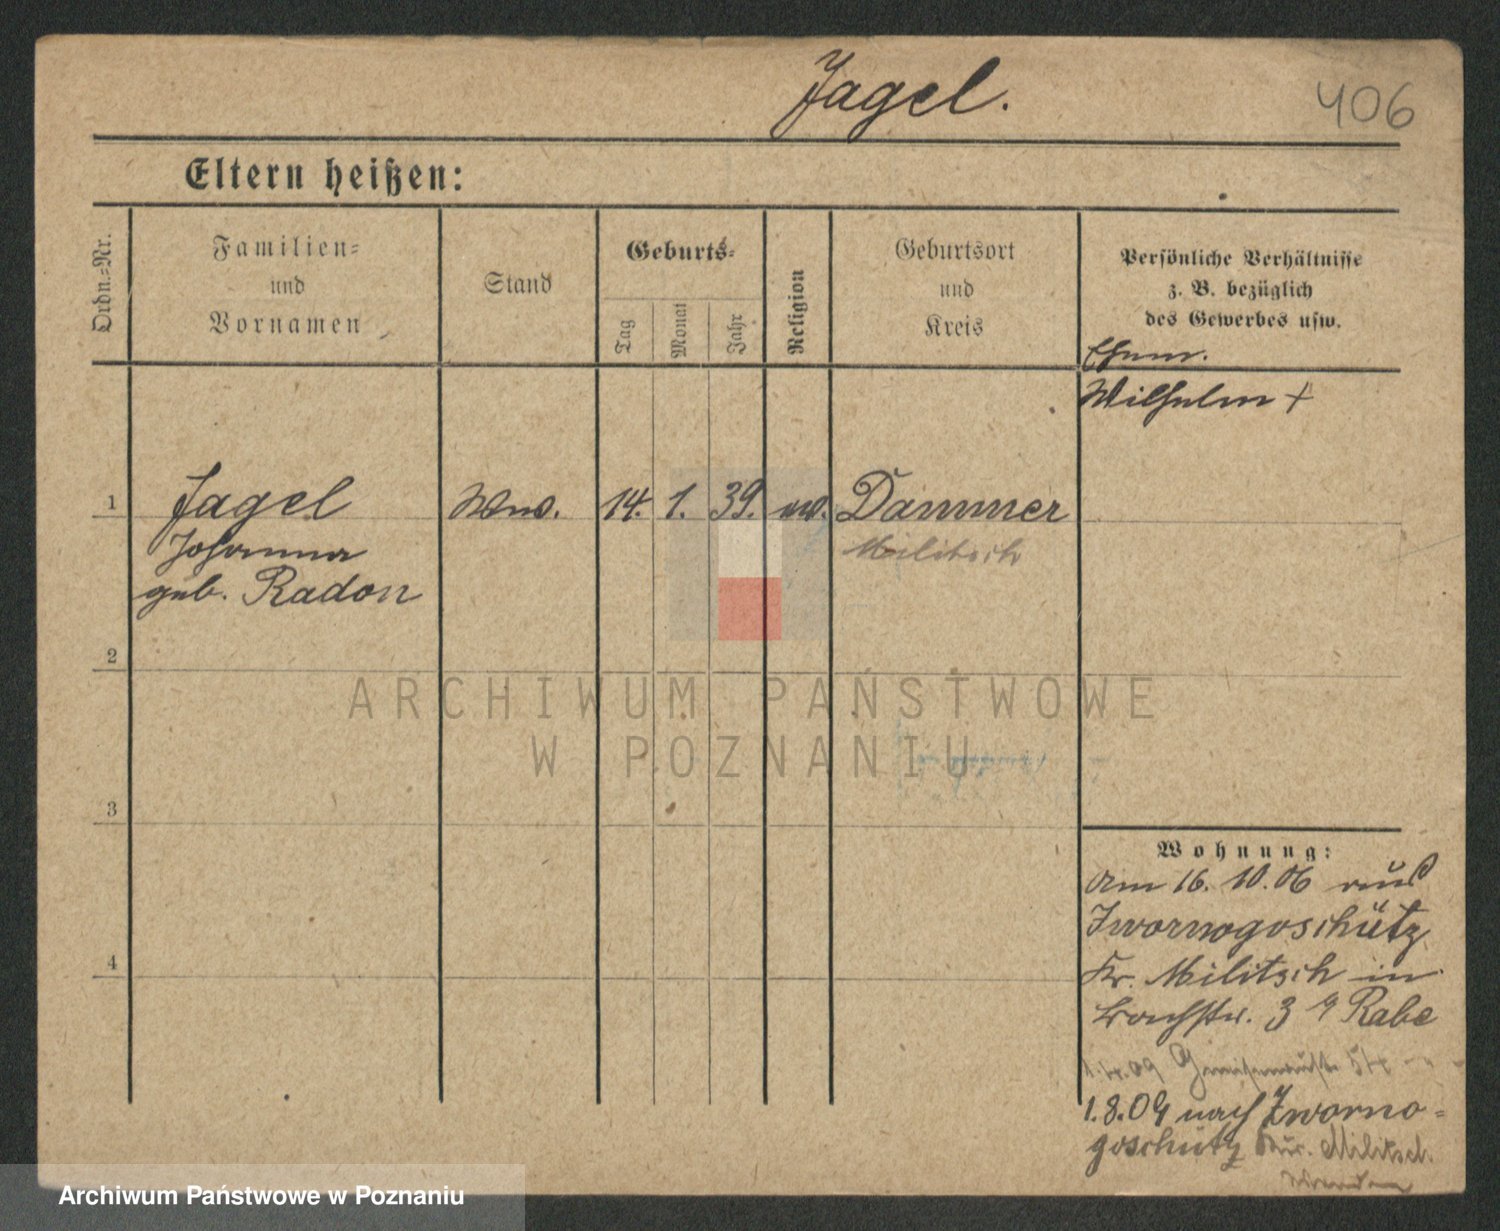 Jagel.
406
Eltern heißen:
Ordn.-Nr.
Familien-
und
Vornamen
Stand
Geburts-
Tag
Monat
Jahr
Religion
Geburtsort
und
Kreis
Persönliche Verhältnisse
z. B. bezüglich
des Gewerbes usw.
Ehem.
Wilhelm +
1
Jagel
Johanna
geb. Radon
Wwe.
14.
1.
39.
ev.
Dammer
Militsch
2
ARCHIWUM PAŃSTWOWE
W POZNANIU
3
4
Wohnung:
Am 16. 10. 06 aus
Zwornogoschütz
Kr. Militsch in
3 Rabe
1.4.09 Gneisenaustr. 54
1.8.09 nach Zworno-
goschütz Kr. Militsch.
Archiwum Państwowe w Poznaniu